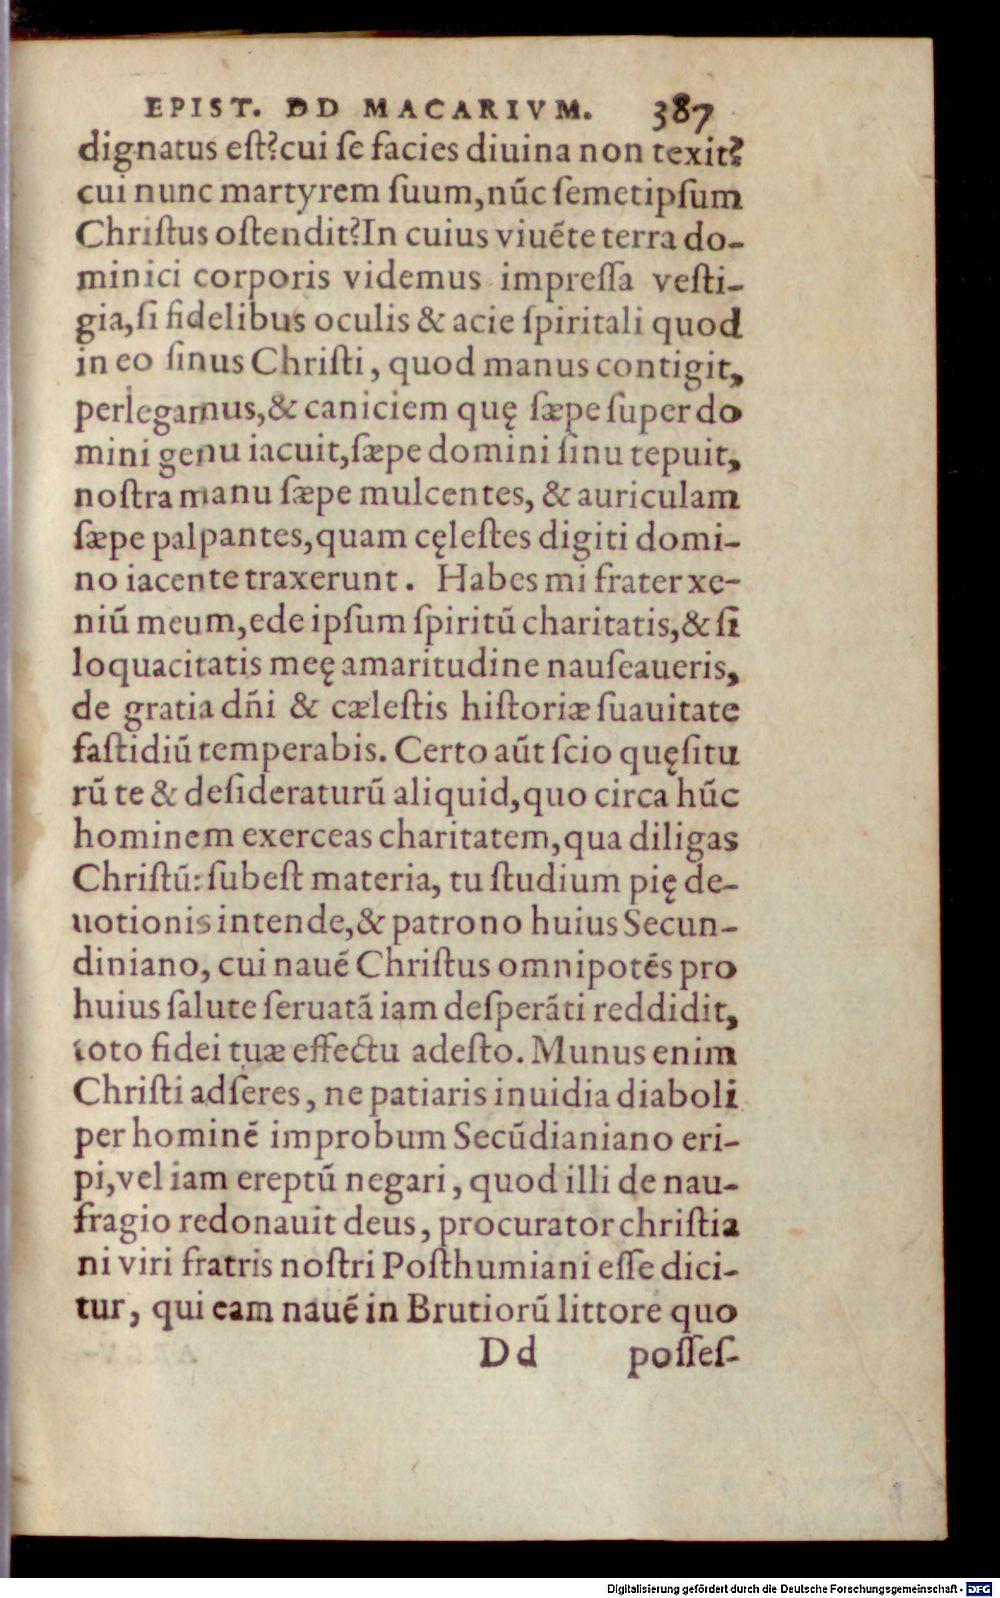 EPIST. DD MACARIVM. 387
dignatus eſt?cui ſe facies diuina non texit?
cui nunc martyrem ſuum,nũc ſemetipſum
Chriſtus oſtendit?In cuius viuẽte terra do-
minici corporis videmus impreſſa veſti-
gia,ſi fidelibus oculis & acie ſpiritali quod
in eo ſinus Chriſti, quod manus contigit,
perlegamus,& caniciem quę ſæpe ſuper do
mini genu iacuit,ſæpe domini ſinu tepuit,
noſtra manu ſæpe mulcentes, & auriculam
ſæpe palpantes,quam cęleſtes digiti domi-
no iacente traxerunt. Habes mi frater xe-
niũ meum,ede ipſum ſpiritũ charitatis,& ſi
loquacitatis meę amaritudine nauſeaueris,
de gratia dñi & cæleſtis hiſtoriæ ſuauitate
faſtidiũ temperabis. Certo aũt ſcio quęſitu
rũ te & deſideraturũ aliquid,quo circa hũc
hominem exerceas charitatem,qua diligas
Chriſtũ: ſubeſt materia, tu ſtudium pię de-
uotionis intende,& patrono huius Secun-
diniano, cui nauẽ Chriſtus omnipotẽs pro
huius ſalute ſeruatã iam deſperãti reddidit,
toto fidei tuæ effectu adeſto. Munus enim
Chriſti adſeres, ne patiaris inuidia diaboli
per hominẽ improbum Secũdianiano eri-
pi,vel iam ereptũ negari, quod illi de nau-
fragio redonauit deus, procurator chriſtia
ni viri fratris noſtri Poſthumiani eſſe dici-
tur, qui eam nauẽ in Brutiorũ littore quo
Dd poſſeſ-
Digitalisierung gefördert durch die Deutsche Forschungsgemeinschaft - DFG